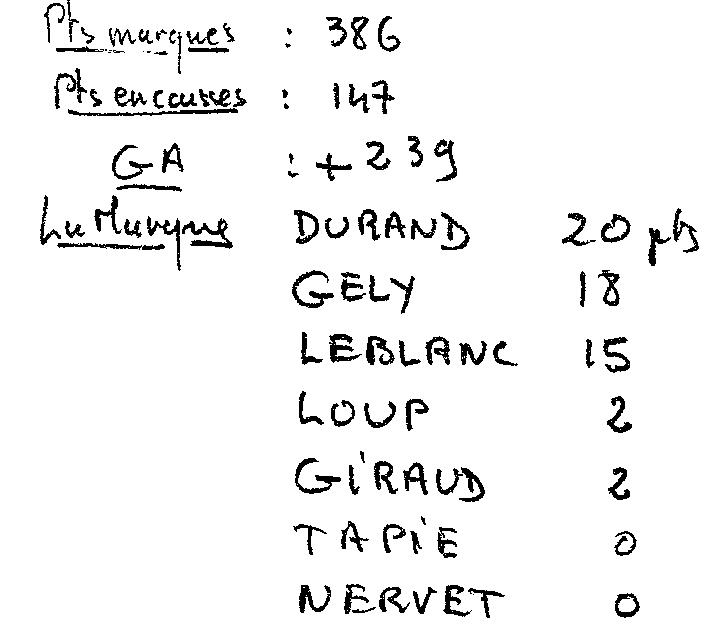 Pts marques : 386
Pts encaisses : 147
GA : + 239
La Marque DURAND 20 pts
GELY 18
LEBLANC 15
LOUP 2
GIRAUD 2
TAPIE 0
NERVET 0